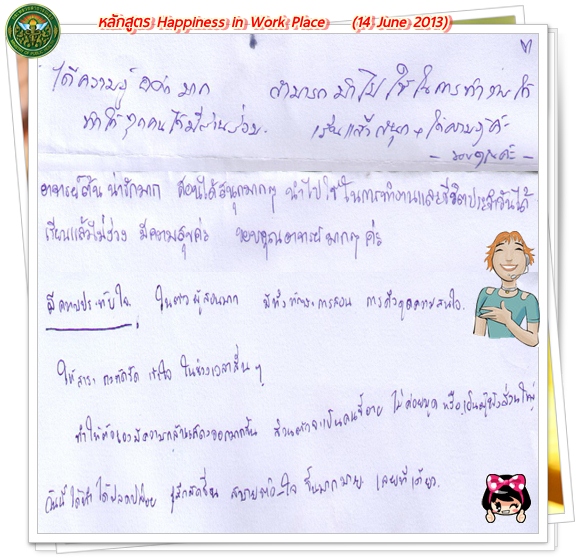 หลักสูตร Happiness in Work Place (14 June 2013)
ได้ความรู้ มาก สามารถนำไปใช้ในการทำงานได้
ทำให้ทุกคนได้มีส่วนร่วม. เรียนแล้วสนุก + ได้ความรู้ค่ะ
- ขอบคุณค่ะ -
อาจารย์ น่ารักมาก สอนได้สนุกมากๆ นำไปใช้ในการทำงานและชีวิตประจำวันได้
เรียนแล้วไม่ง่วง มีความสุขค่ะ ขอบคุณอาจารย์มากๆ ค่ะ
มีความประทับใจ ในตัวผู้สอนมาก มีทั้งทักษะการสอน การดึงดูดความสนใจ.
ให้สาระ กระชับ เข้าใจ ในช่วงเวลาสั้นๆ
ทำให้ตัวเองมีความกล้าแสดงออกมากขึ้น ส่วนตัวจะเป็นคนขี้อาย ไม่ค่อยพูด หรือเป็นผู้ฟังส่วนใหญ่
วันนี้ ได้ปลดปล่อย รู้สึกสดชื่น สบายตัว-ใจ ขึ้นมากมาย เลยทีเดียว.